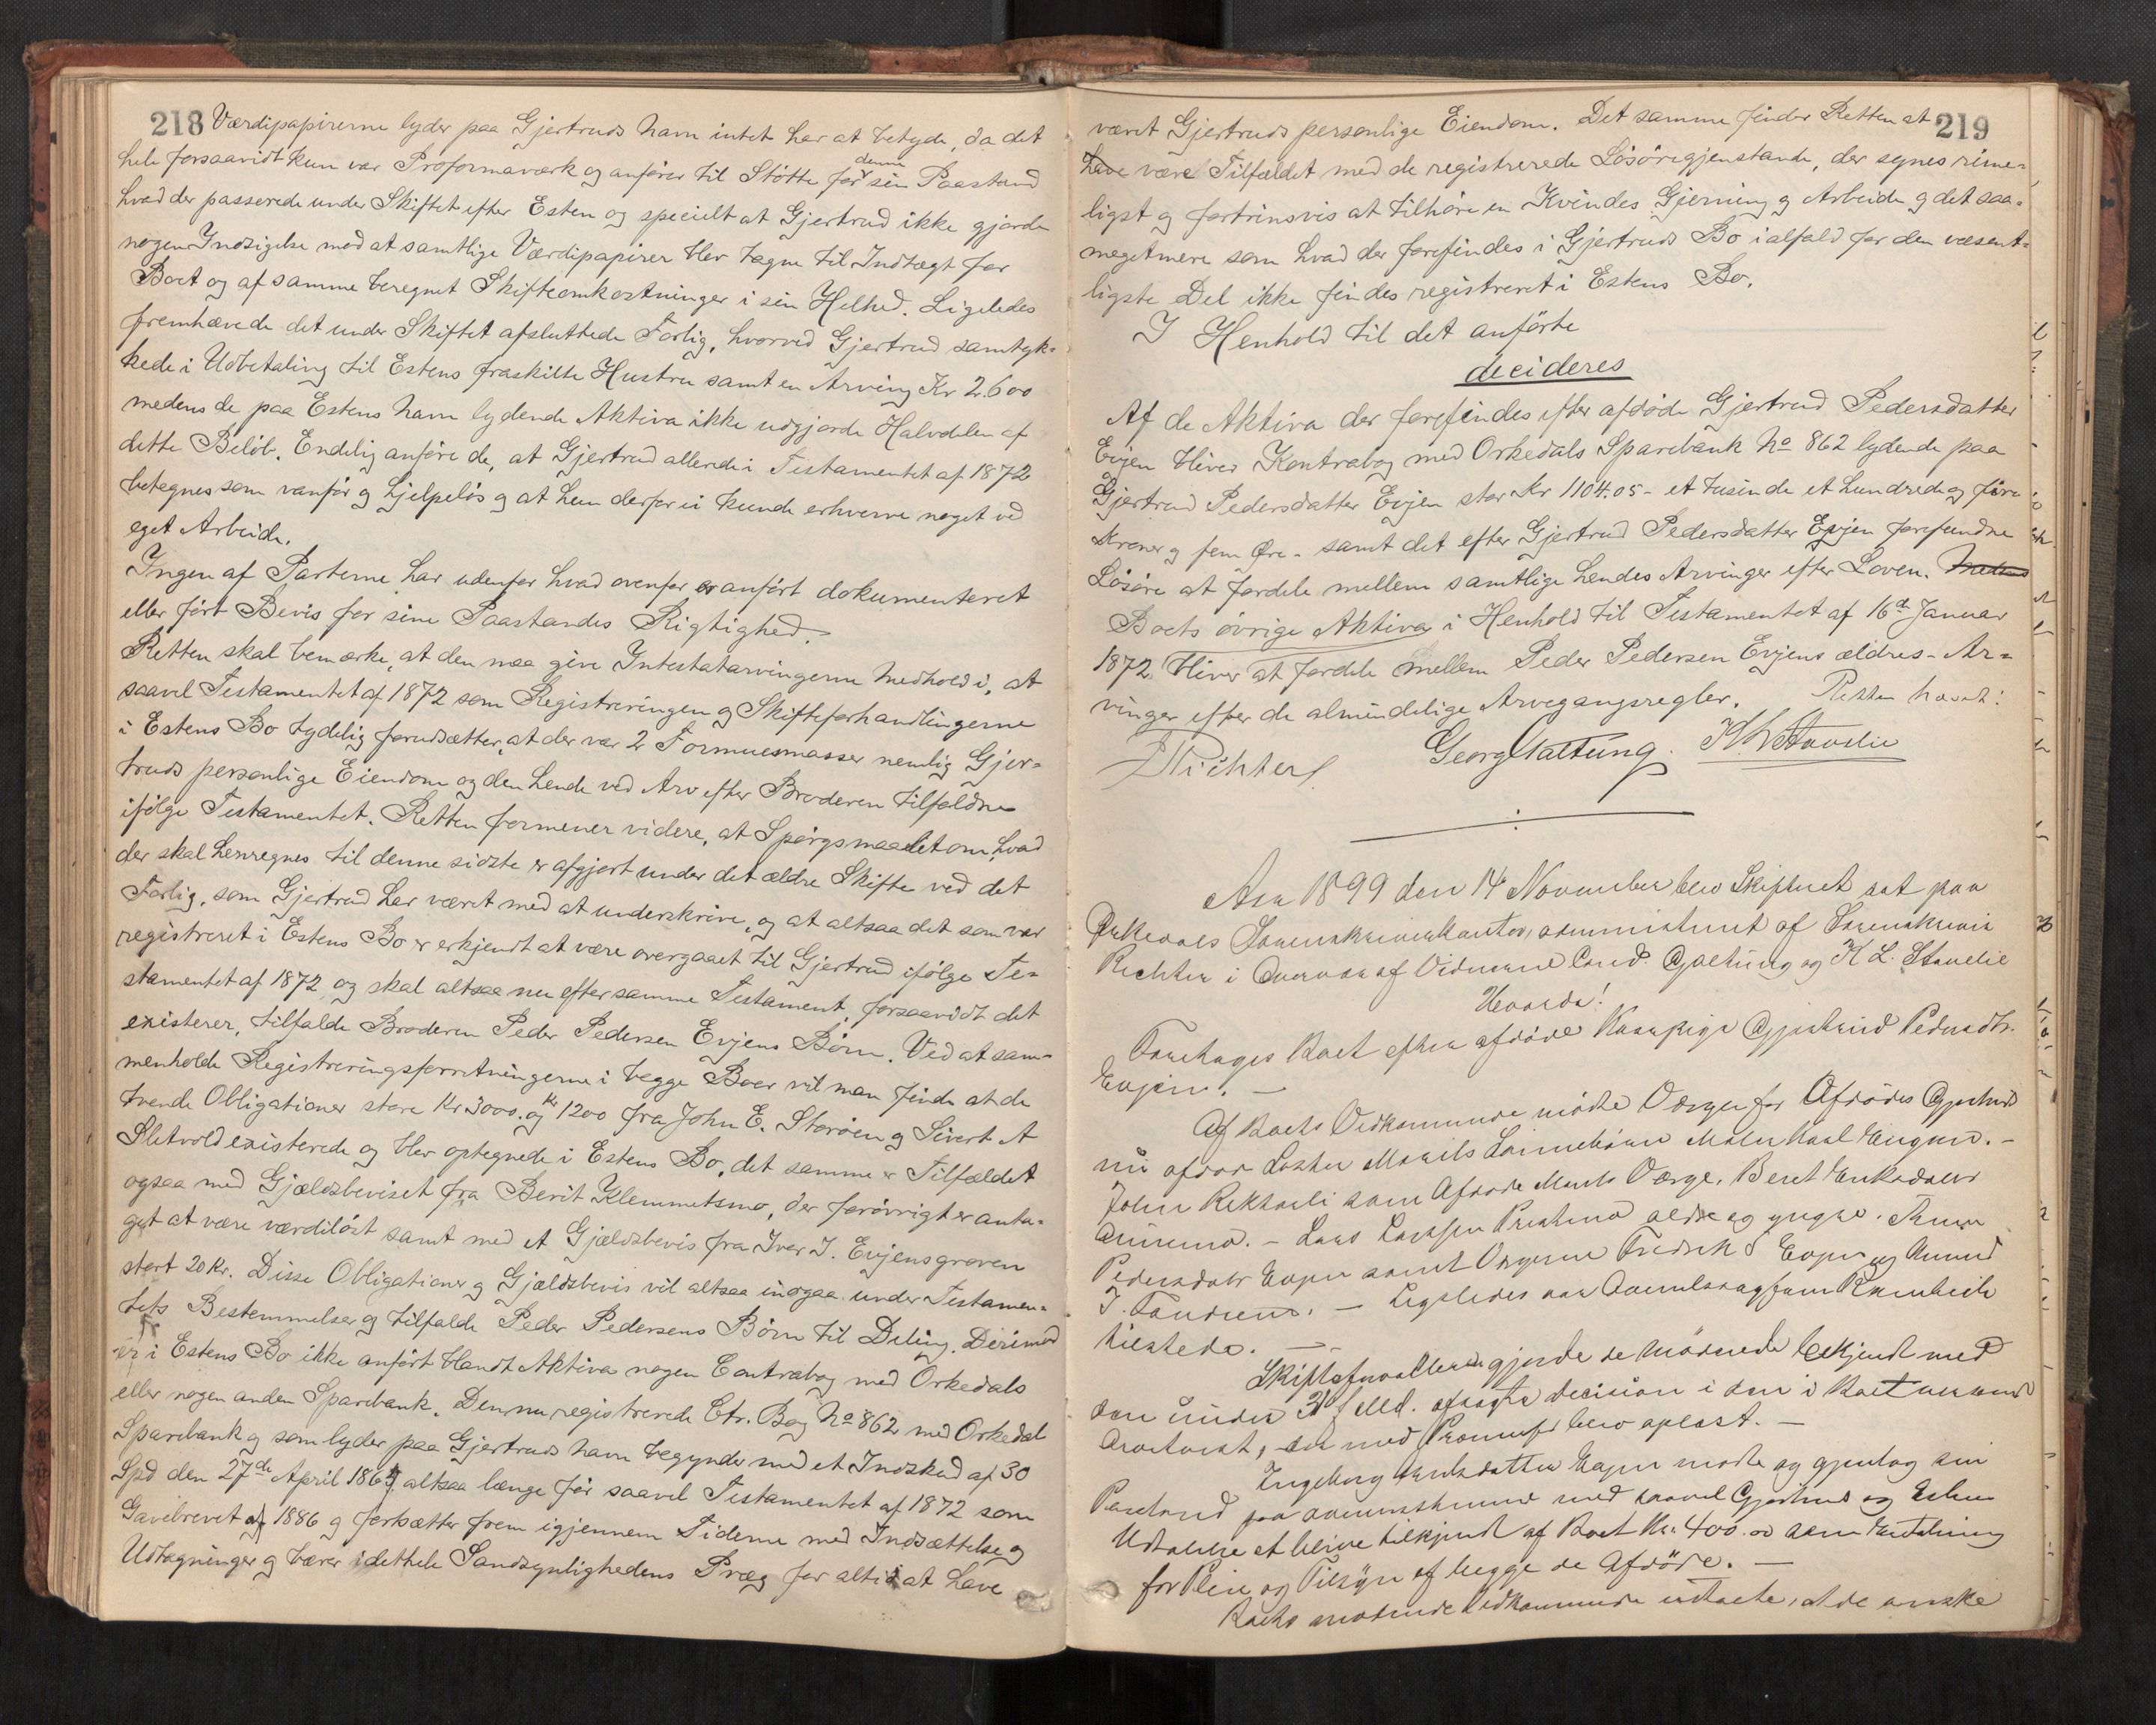 218 Værdipapirerne lyder paa Gjertruds Navn intet har at betyde, da det
hele forsaavidt kun var Proformaværk og anfører til Støtte for denne sin Paastand
hvad der passerede under Skiftet efter Esten og specielt at Gjertrud ikke gjorde
nogen Indsigelse mod at samtlige Værdipapirer blev tagne til Indtægt for
Boet og af samme beregnet Skifteomkostninger i sin Helhed. Ligeledes
fremhæve de det under Skiftet afsluttede Forlig, hvorved Gjertrud samtyk-
kede i Udbetaling til Estens fraskilte Hustru samt en Arving Kr 2.600
medens de paa Estens Navn lydende Aktiva ikke udgjorde Halvdelen af
dette Beløb. Endelig anføre de, at Gjertrud allerede i Testamentet af 1872
betegnes som vanfør og hjelpeløs og at hun derfor ei kunde erhverve noget ved
eget Arbeide.
Ingen af Parterne har udenfor hvad ovenfor er anført dokumenteret
eller ført Bevis for sine Paastandes Rigtighed.
Retten skal bemærke, at den maa give Intestatarvingerne Medhold i, at
saavel Testamentet af 1872 som Registreringen og Skifteforhandlingerne
i Estens Bo tydelig forudsætter, at der var 2 Formuesmasser nemlig Gjer-
truds personlige Eiendom og den hende ved Arv efter Broderen tilfaldne
ifølge Testamentet. Retten formener videre, at Spørgsmaalet om, hvad
der skal henregnes til denne sidste er afgjort under det ældre Skifte ved det
Forlig, som Gjertrud har været med at underskrive, og at altsaa det som var
registreret i Estens Bo er erkjendt at være overgaaet til Gjertrud ifølge Te-
stamentet af 1872 og skal altsaa nu efter samme Testament, forsaavidt det
existerer, tilfalde Broderen Peder Pedersen Evjens Børn. Ved at sam-
menholde Registreringsforretningerne i begge Boer vil man finde at de
tvende Obligationer store Kr 3000. og Kr 1200 fra John E. Storøen og Sivert A
Sletvold existerede og blev optegnede i Estens Bo, det samme er Tilfældet
ogsaa med Gjældsbeviset fra Berit Klemmetsmo, der forøvrigt er anta-
get at være værdiløst samt med et Gjældsbevis fra Iver J. Evjensgraven
stort 20 Kr. Disse Obligationer og Gjældsbevis vil altsaa indgaa under Testamen-
tets Bestemmelser og tilfalde Peder Pedersens Børn til Deling. Derimod
er i Estens Bo ikke anført blandt Aktiva nogen Contrabog med Orkedals
eller nogen anden Sparebank. Den nu registrerede Ctr. Bog No 862 med Orkedals
Sparebank og som lyder paa Gjertruds Navn begynder med et Indskud af 30
Spd den 27de April 1867, altsaa længe før saavel Testamentet af 1872 som
Gavebrevet af 1886 og fortsætter frem igjennem Tiderne med Indsættelse og
Udtagninger og bærer idethele Sandsynlighedens Præg for altid at have
været Gjertruds personlige Eiendom. Det samme finder Retten at 219
have være Tilfældet med de registrerede Løsøregjenstande, der synes rime-
ligst og fortrinsvis at tilhøre en Kvindes Gjerning og Arbeide og det saa-
megetmere som hvad der forefindes i Gjertruds Bo ialfald for den væsent-
ligste Del ikke findes registreret i Estens Bo.
I Henhold til det anførte
decideres
Af de Aktiva der forefindes efter afdøde Gjertrud Pedersdatter
Evjen bliver Kontrabog med Orkedals Sparebank No 862 lydende paa
Gjertrud Pedersdatter Evjen stor Kr 1104.05 - et tusinde et hundrede og fire
Kroner og fem Øre - samt det efter Gjertrud Pedersdatter Evjen forefundne
Løsøre at fordele mellem samtlige hendes Arvinger efter Loven. Medens
Boets øvrige Aktiva i Henhold til Testamentet af 16de Januar
1872 bliver at fordele mellem Peder Pedersen Evjens ældres Ar-
vinger efter de almindelige Arvegangsregler. Retten hævet:
Richter Georg Galtung. K. L. Stavelie
Aar 1899 den 14 November blev Skifteret sat paa
Orkedals Sorenskriverkontor, administreret af Sorenskriver
Richter i Overvær af Vidnerne Cand. Galtung og K L. Stavelie
Hvorda!
Foretages Boet efter afdøde Kaarpige Gjertrud Pedersdtr.
Evjen. -
Af Boets Vedkommende mødte Værge for Afdødes Gjertruds
nu afdød Søster Marits Børn
John som Afdøde Marits Værge, Beret Eriksdatter
- Lars Larsen ældre og yngre.
Pedersdatr Evjen samt Værgerne Fredrik Evjen og Amund
J. - Ligeledes var Overretssagfører
tilstede. -
Skifteforvalteren gjorde de mødende bekjendt med
den under 3d d. Md. afsagte Decision i den i Boet
som med blev oplæst. -
Ingeborg Eriksdatter Evjen mødte og gjentog sin
Paastand paa overensstemmende med saavel Gjertrud og Estens
Udtalelse at blive tilkjendt af Boet Kr. 400.00 som Godtgjørelse
for Pleie og Tilsyn af begge de Afdøde. -
Boets mødende Vedkommende udtalte, at de ønske